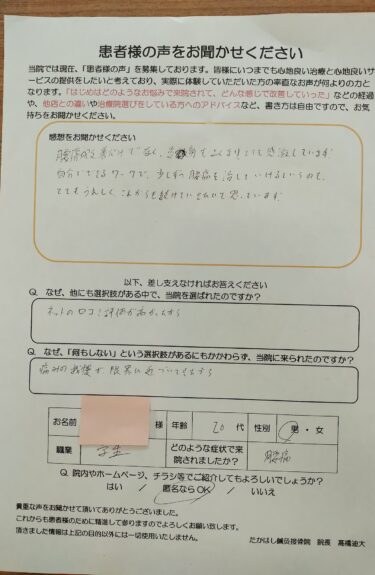 患者様の声をお聞かせください
当院では現在、「患者様の声」を募集しております。皆様にいつまでも心地良い治療と心地良いサ
ービスの提供をしたいと考えており、実際に体験していただいた方の率直なお声が何よりの力と
なります。「はじめはどのようなお悩みで来院されて、どんな感じで改善していった」などの経過
や、他店との違いや治療院選びをしている方へのアドバイスなど、書き方は自由ですので、お気
持ちをお聞かせください。
感想をお聞かせください
腰痛が だけでなく、 もよくなりとても感謝しています
自分でできるワークで、少しずつ腰痛を治していけるというのも、
とてもうれしく これからも続けていきたいと思っています
以下、差し支えなければお答えください
Q. なぜ、他にも選択技がある中で、当院を選ばれたのですか?
ネットの口コミ評価が高かったから
Q. なぜ、「何もしない」という選択技があるにもかかわらず、当院に来られたのですか?
痛みの我慢が、限界に近づいてきたから
お名前 様 年齢 20 代 性別 男・女
職業 学生 どのような症状で来院されましたか? 腰痛
Q. 院内やホームページ、チラシ等でご紹介してもよろしいでしょうか?
はい / 匿名ならOK / いいえ
貴重な声をお聞かせて頂いてありがとうございました。
これからも患者様のために精進して参りますのでよろしくお願い致します。
頂きました情報は上記の目的以外には一切使用いたしません。
たかはし鍼灸接骨院 院長 高橋迪大